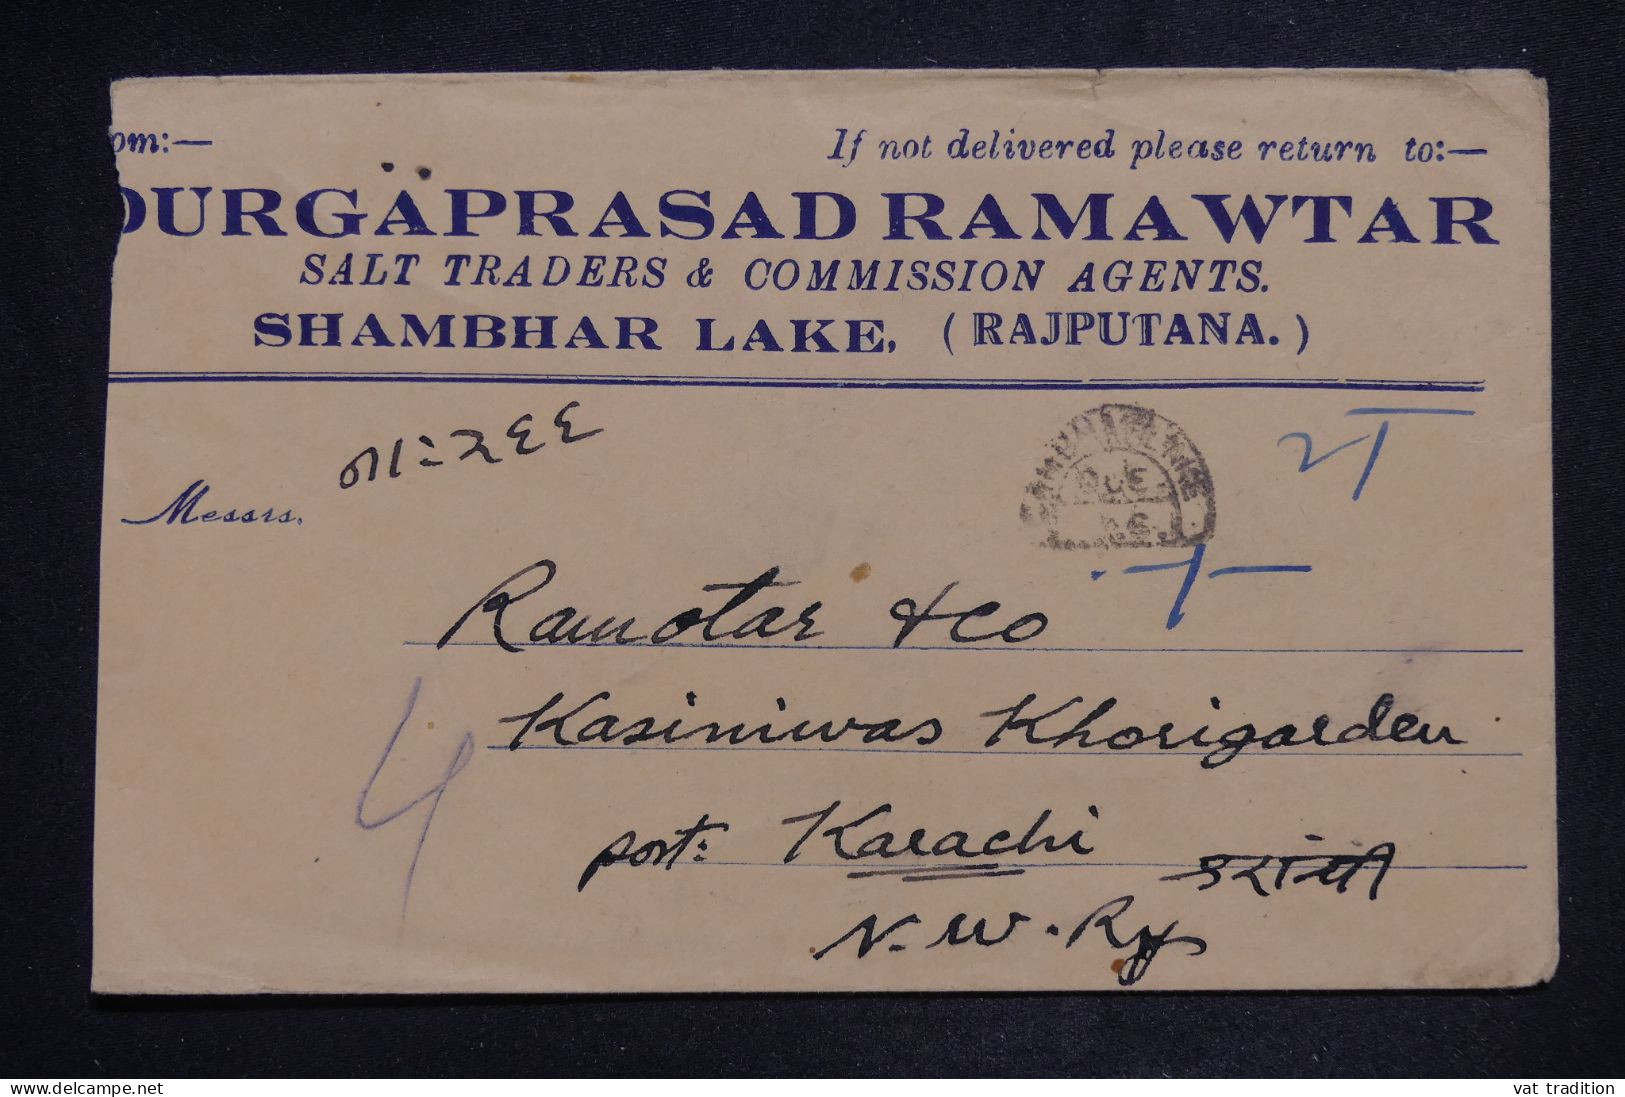 om:—
If not delivered please return to:—
DURGAPRASAD RAMAWTAR
SALT TRADERS & COMMISSION AGENTS.
SHAMBHAR LAKE, (RAJPUTANA.)
Messrs.
Ramotar & Co
Kasiniwas Khorigarden
post: Karachi करांची
N. W. Ry
4
delcampe.net
vat tradition